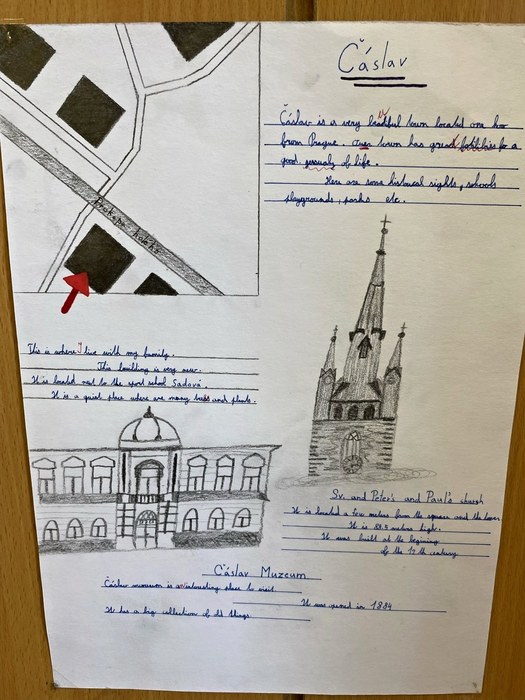 Čáslav
Čáslav is a very beautiful town located one ho
from Prague. Our town has great facilities for a
good quality of life.
Here are some historical sights, schools
playgrounds, parks etc.
Prokopa Holého
This is where I live with my family.
This building is very new.
It is located next to the sport school Sadová.
It is a quiet place where are many trees and plants.
Sv. and Peter's and Paul's church
It is located a few meters from the square and the tower
It is 88.9 metres high.
It was built at the begining
of the 12th century
Čáslav Muzeum
Čáslav museum is an interesting place to visit.
It was opened in 1884
It has a big collection of old things.